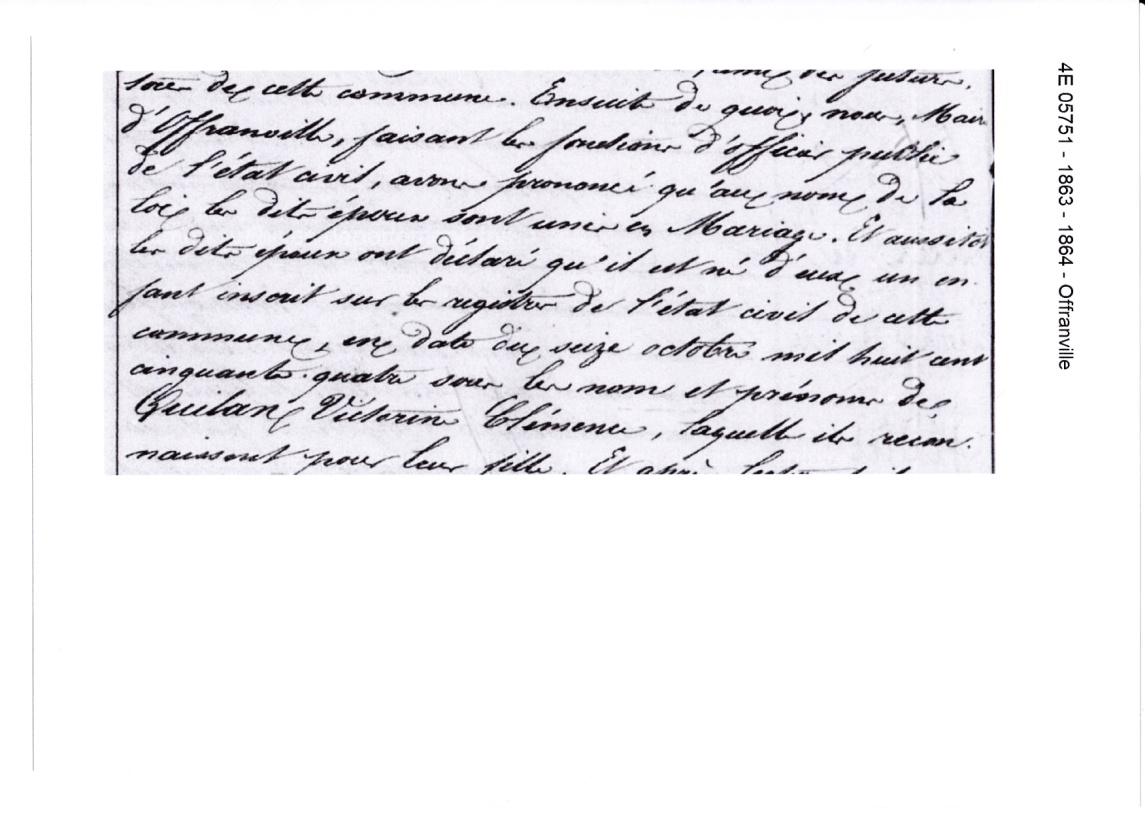 amis des futurs,
tous de cette commune. Ensuite de quoi, nous, Maire
d'Offranville, faisant les fonctions d'officier public
de l'état civil, avons prononcé qu'au nom de la
loi les dits époux sont unis en Mariage. Et aussitôt
les dits époux ont déclaré qu'il est né d'eux un en
fant inscrit sur les registres de l'état civil de cette
commune, en date du seize octobre mil huit cent
cinquante-quatre sous les nom et prénoms de
Victorine Clémence, laquelle ils recon-
naissent pour leur fille. Et après
4E 05751 - 1863 - 1864 - Offranville